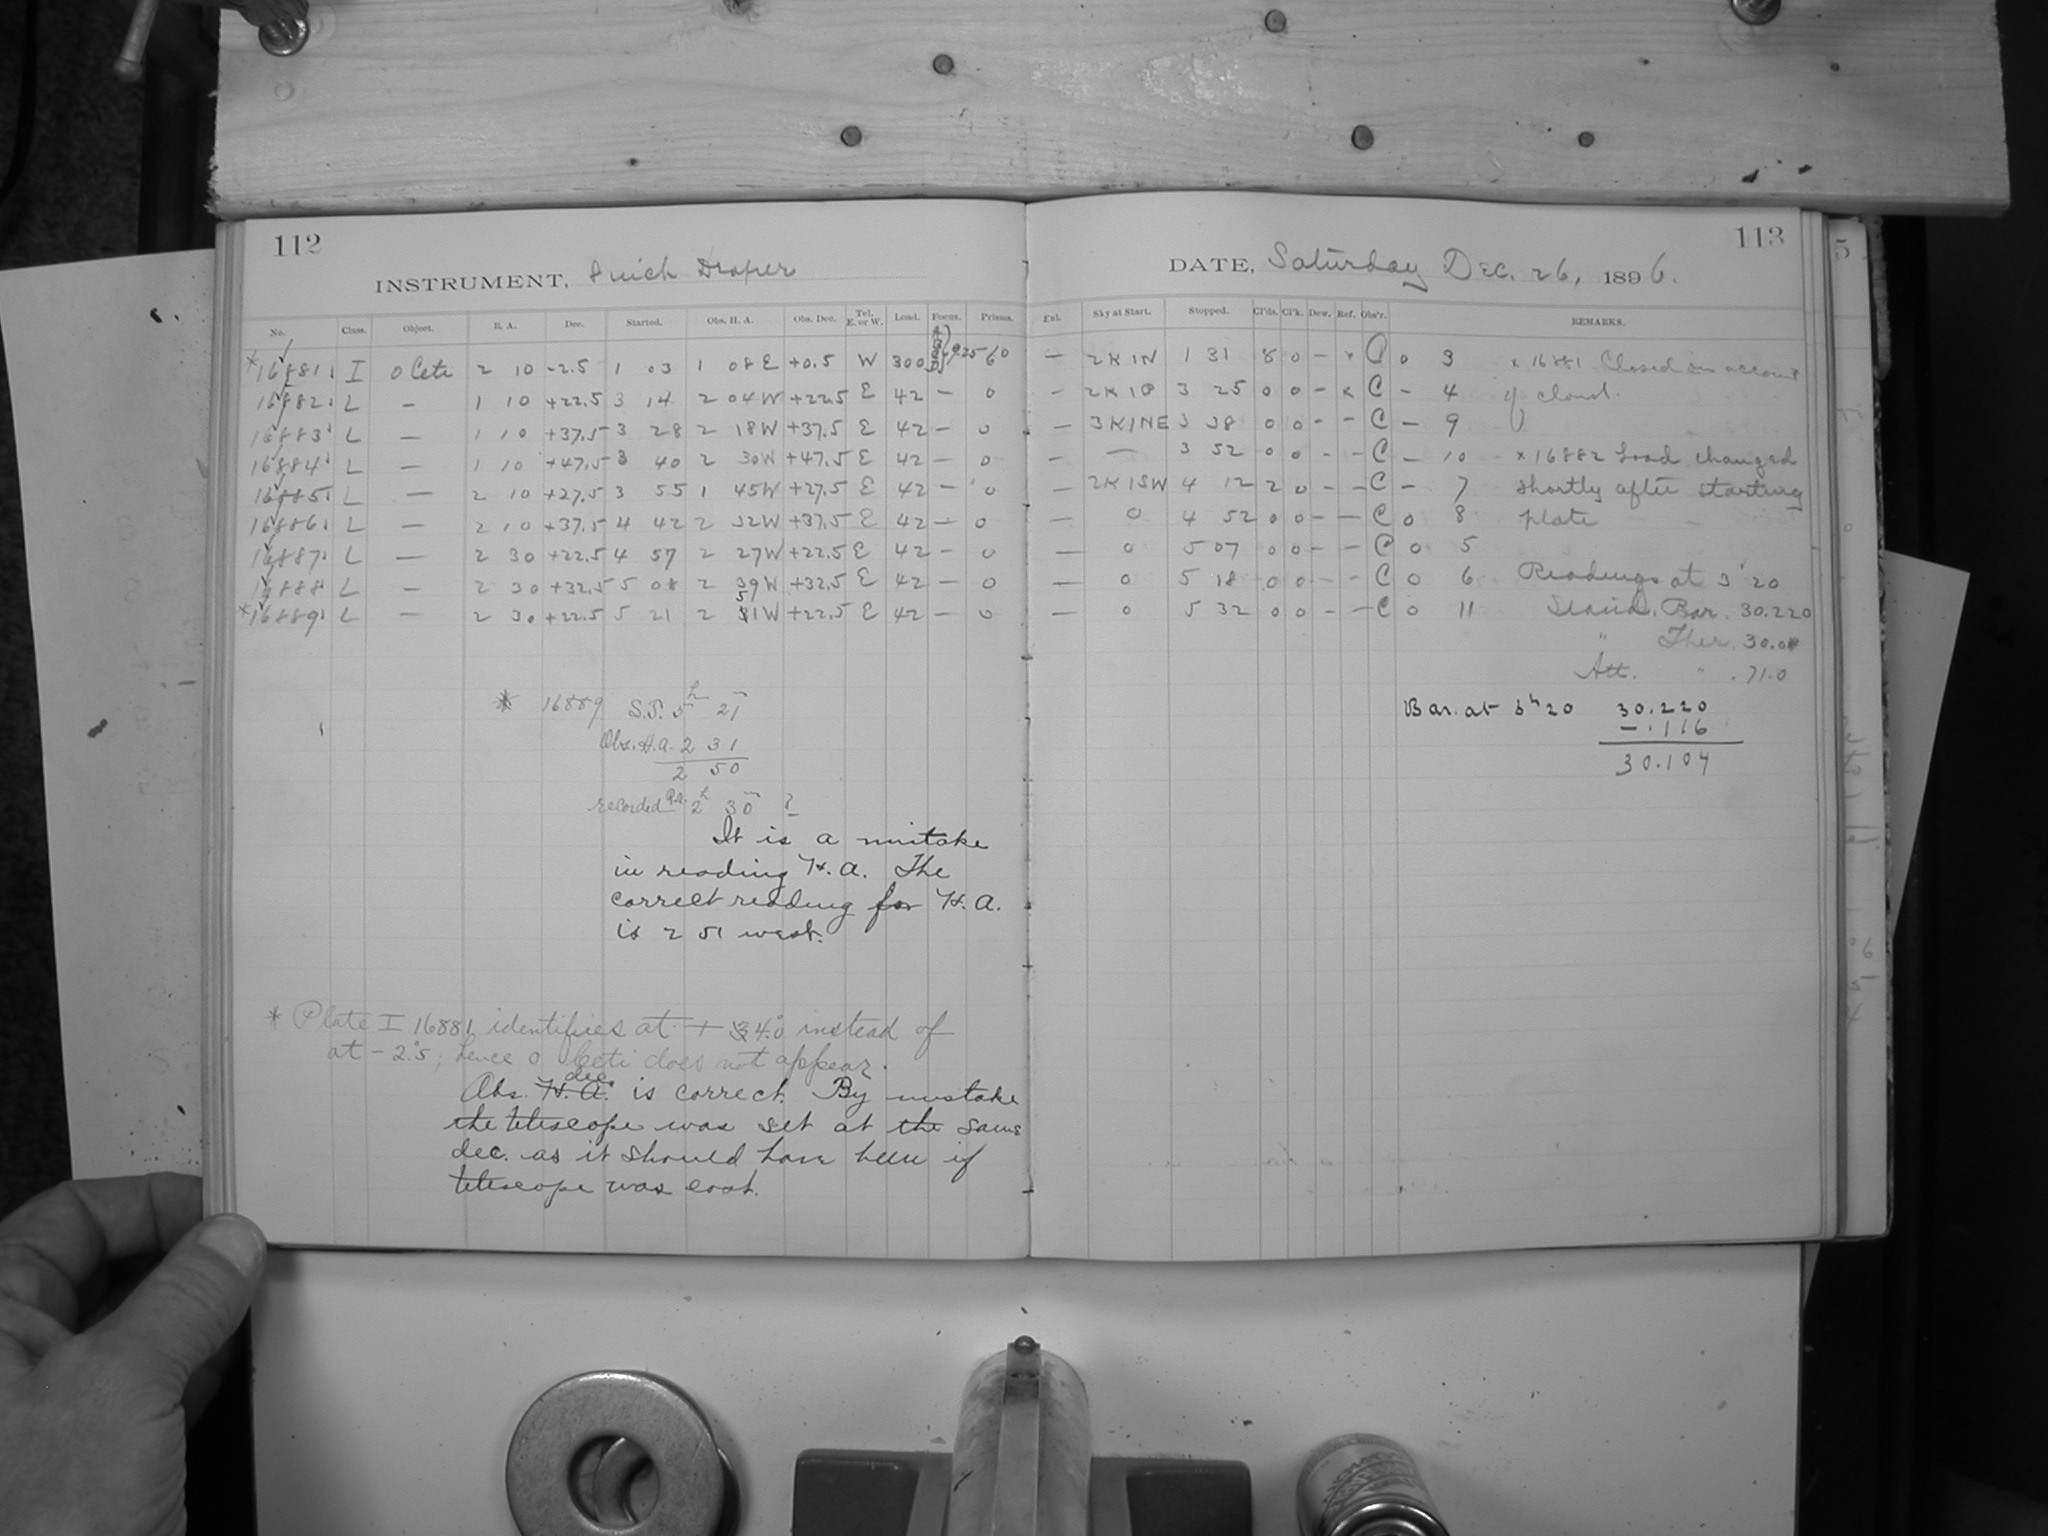 112
INSTRUMENT, 8 inch Draper
No. Class. Object. R. A. Dec. Started. Obs. H. A. Obs. Dec. Tel. E. or W. Load. Focus. Prisms.
*16881 I o Ceti 2 10 -2.5 1 03 1 08 E +0.5 W 300 60
16882 L — 1 10 +22.5 3 14 2 04 W +22.5 E 42 — 0
16883 L — 1 10 +37.5 3 28 2 18 W +37.5 E 42 — 0
16884 L — 1 10 +47.5 3 40 2 30 W +47.5 E 42 — 0
16885 L — 2 10 +27.5 3 55 1 45 W +27.5 E 42 — 0
16886 L — 2 10 +37.5 4 42 2 32 W +37.5 E 42 — 0
16887 L — 2 30 +22.5 4 57 2 27 W +22.5 E 42 — 0
16888 L — 2 30 +32.5 5 08 2 39 W +32.5 E 42 — 0
*16889 L — 2 30 +22.5 5 21 2 51 W +22.5 E 42 — 0
* 16889 S.T. 5h 21
Obs. H.A. 2 31
2 50
recorded R.A. 2h 30 ?
It is a mistake
in reading H.A. The
correct reading for H.A.
is 2 51 west.
* Plate I 16881 identifies at + 4.0 instead of
at - 2.5; hence o Ceti does not appear.
Obs. H.A. dec. is correct. By mistake
the telescope was set at the same
dec. as it should have been if
telescope was east.
113
DATE, Saturday Dec. 26, 1896.
Ent. Sky at Start. Stopped. Cl'ds. Cl'k. Dew. Ref. Obs'r. REMARKS.
— 2K1N 1 31 8 0 - x C 0 3 x 16881 Closed on account
— 2K1 3 25 0 0 - x C - 4 of cloud.
— 3K1NE 3 38 0 0 - - C - 9
— — 3 52 0 0 - - C - 10 x 16882 Load changed
— 2K1SW 4 12 2 0 - - C - 7 shortly after starting
— 0 4 52 0 0 - - C 0 8 plate
— 0 5 07 0 0 - - C 0 5
— 0 5 18 0 0 - - C 0 6 Readings at 3 20
— 0 5 32 0 0 - - C 0 11 Stand. Bar. 30.220
" Ther. 30.0
Att. " . 71.0
Bar. at 3h 20 30.220
-.116
30.104
5